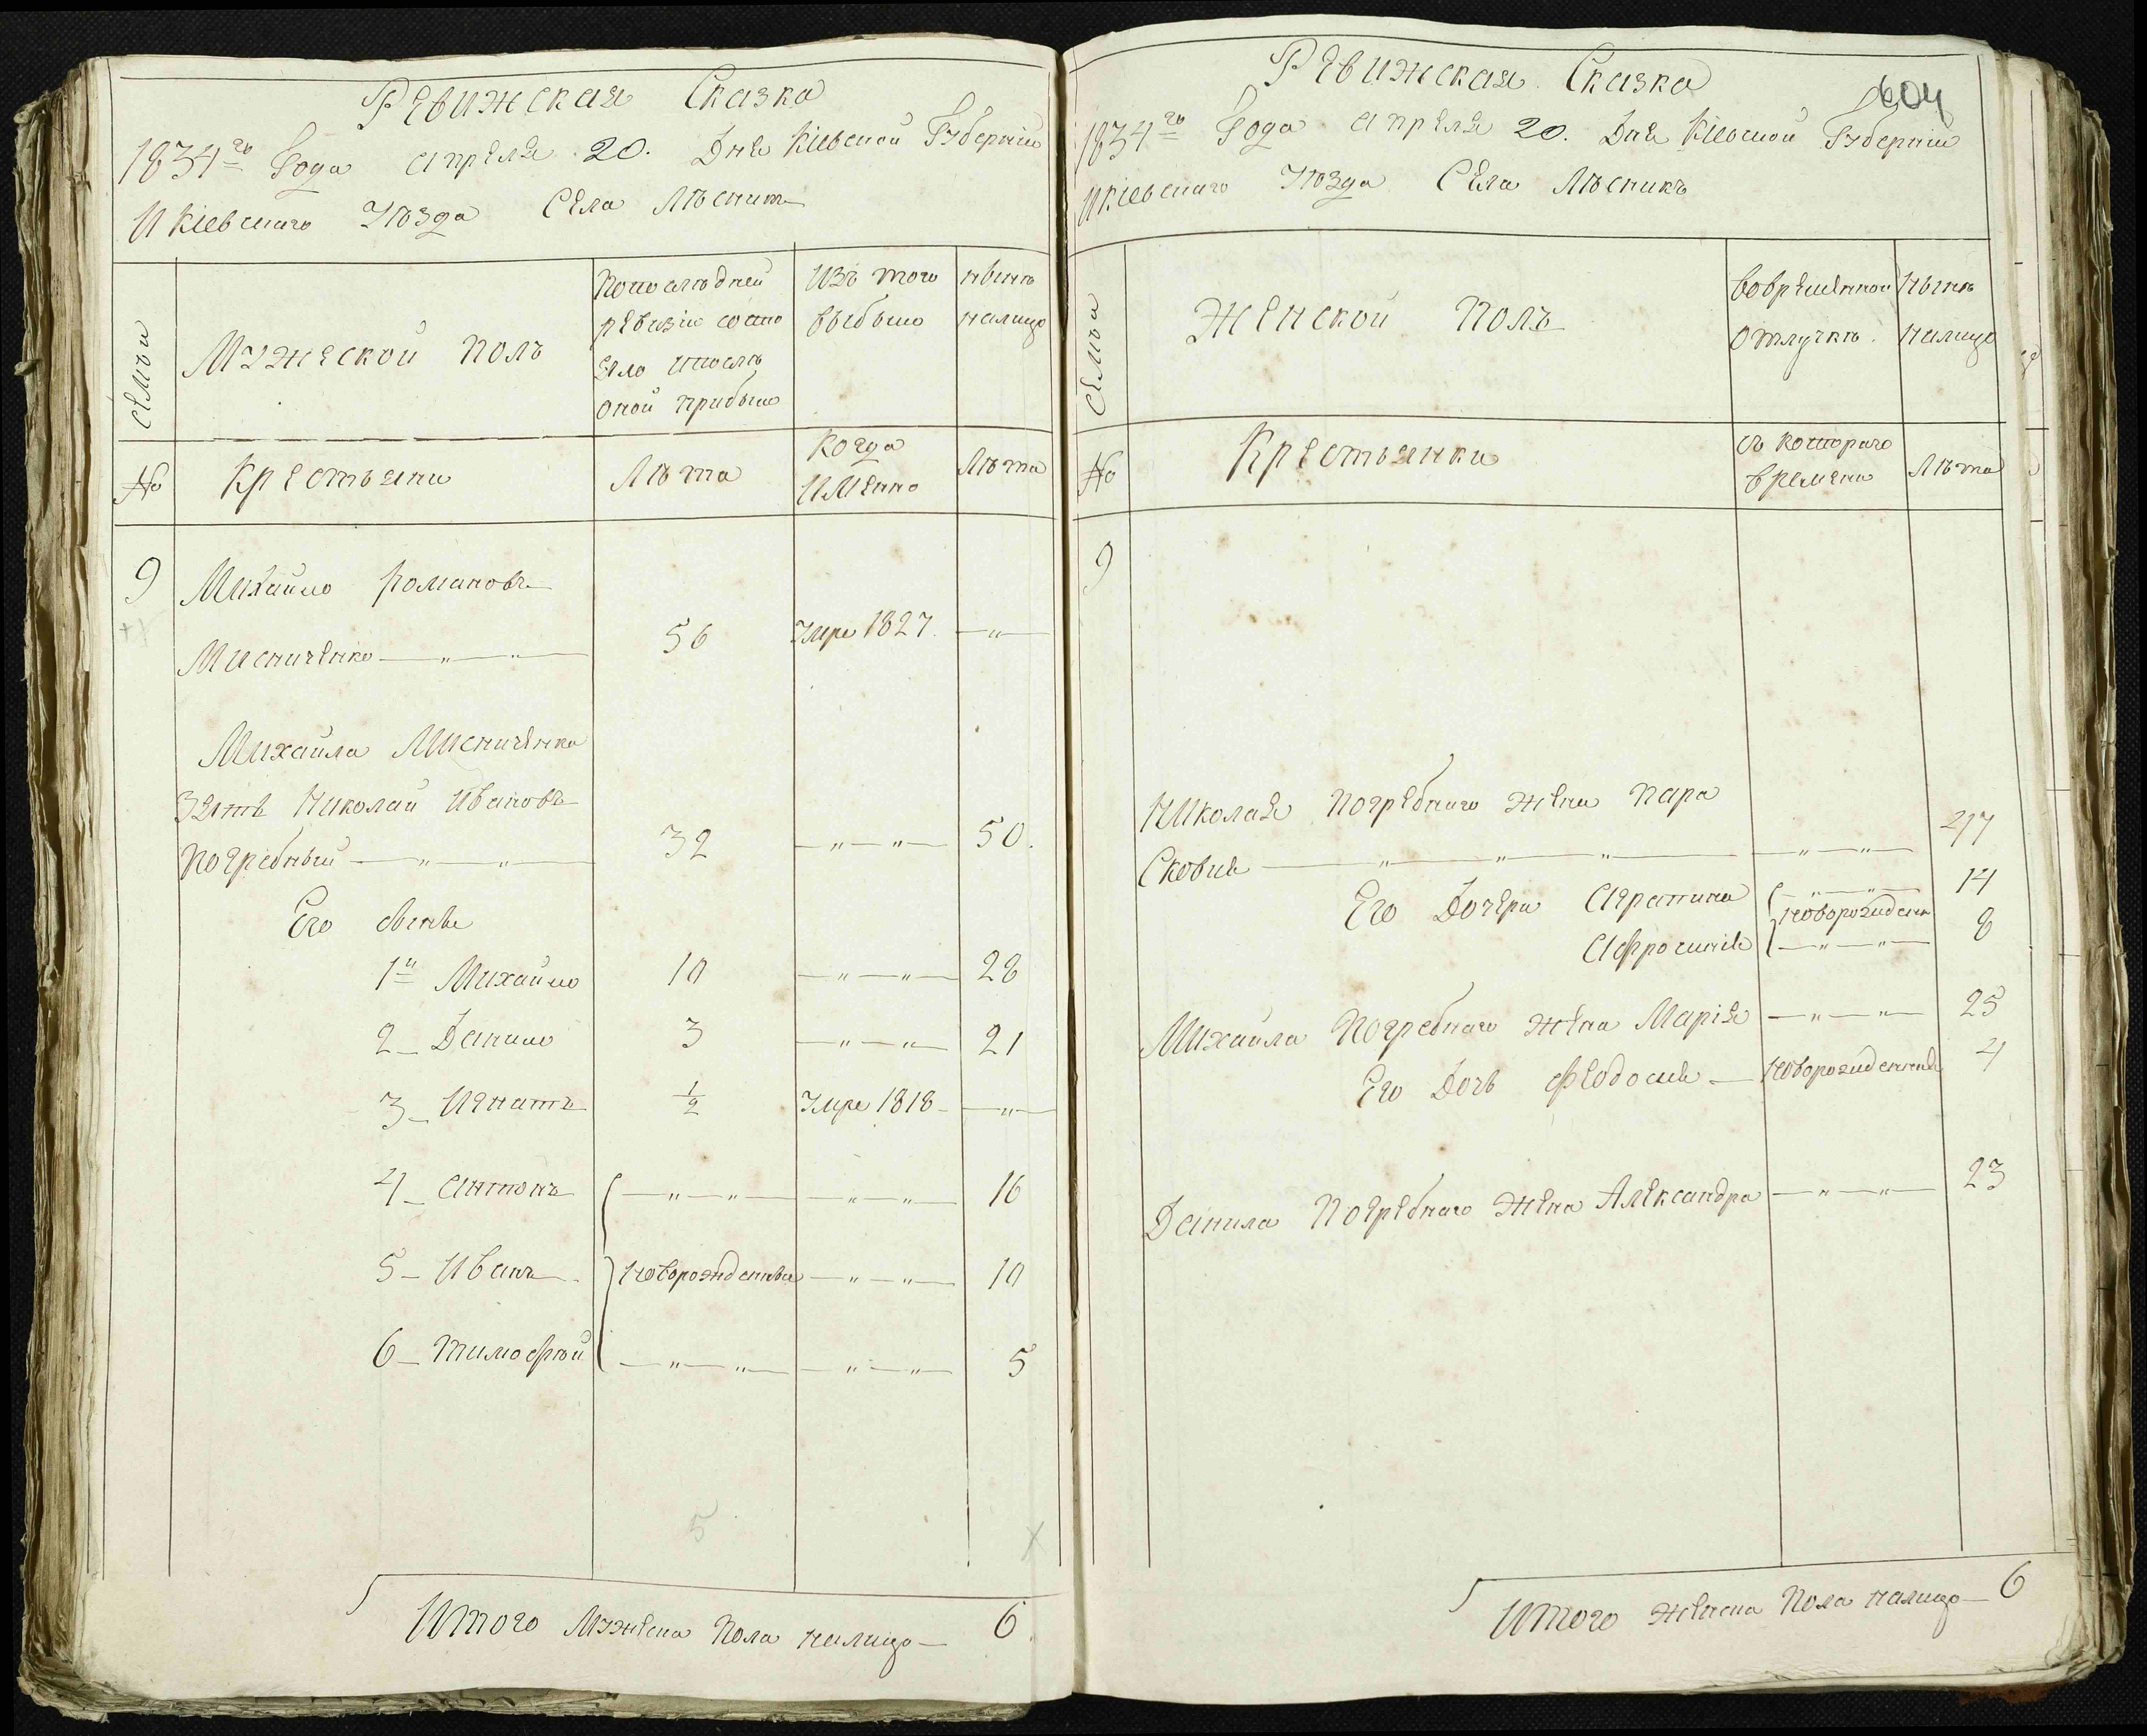 Ревижская Сказка
1834го Года Апреля 20. Дня Кіевской Губерніи
И Кіевскаго Уѣзда Села Лѣсник
Семьи
Мужеской полъ
По последней
ревизіи состо
яло и после
оной прибыло
Изъ того
выбыло
Нынѣ
налицо
№
Крестьяни
Лѣта
Когда
Именно
Лѣта
9
Михайло Романовъ
Мисниченко — " — " —
56
Умре 1827.
— " —
Михайла Мисниченка
Зять Николай Ивановъ
Погребный — " — " —
32
— " — " —
50.
Его сыны
1й Михайло
10
— " — " —
28
2 — Данило
3
— " — " —
21
3 — Игнатъ
1/2
Умре 1818 —
— " —
4 — Антонъ
— " — " —
— " — " —
16
5 — Иванъ —
Новорожденныи
— " — " —
10
6 — Тимофѣй
— " — " —
— " — " —
5
5
Итого Мужеска Пола налицо — 6.
604
Ревижская Сказка
1834го Года Апреля 20. Дня Кіевской Губерніи
И Кіевскаго Уѣзда Села Лѣсникъ
Семьи
Женской Полъ
Во временной
отлучкѣ.
Нынѣ
налицо
№
Крестьянки
Съ котораго
времени
Лѣта
9
Николая Погребнаго жена Пара
Сковия — " — " — " —
— " — " —
47
Его Дочери Агрипина
— " — " —
14
новорожден
Афросинія
— " — " —
8
Михайла Погребнаго жена Марія
— " — " —
25
Его Дочь Феодосия —
Новорожденная
4
Данила Погребнаго жена Александра
— " — " —
23
Итого женска Пола налицо — 6